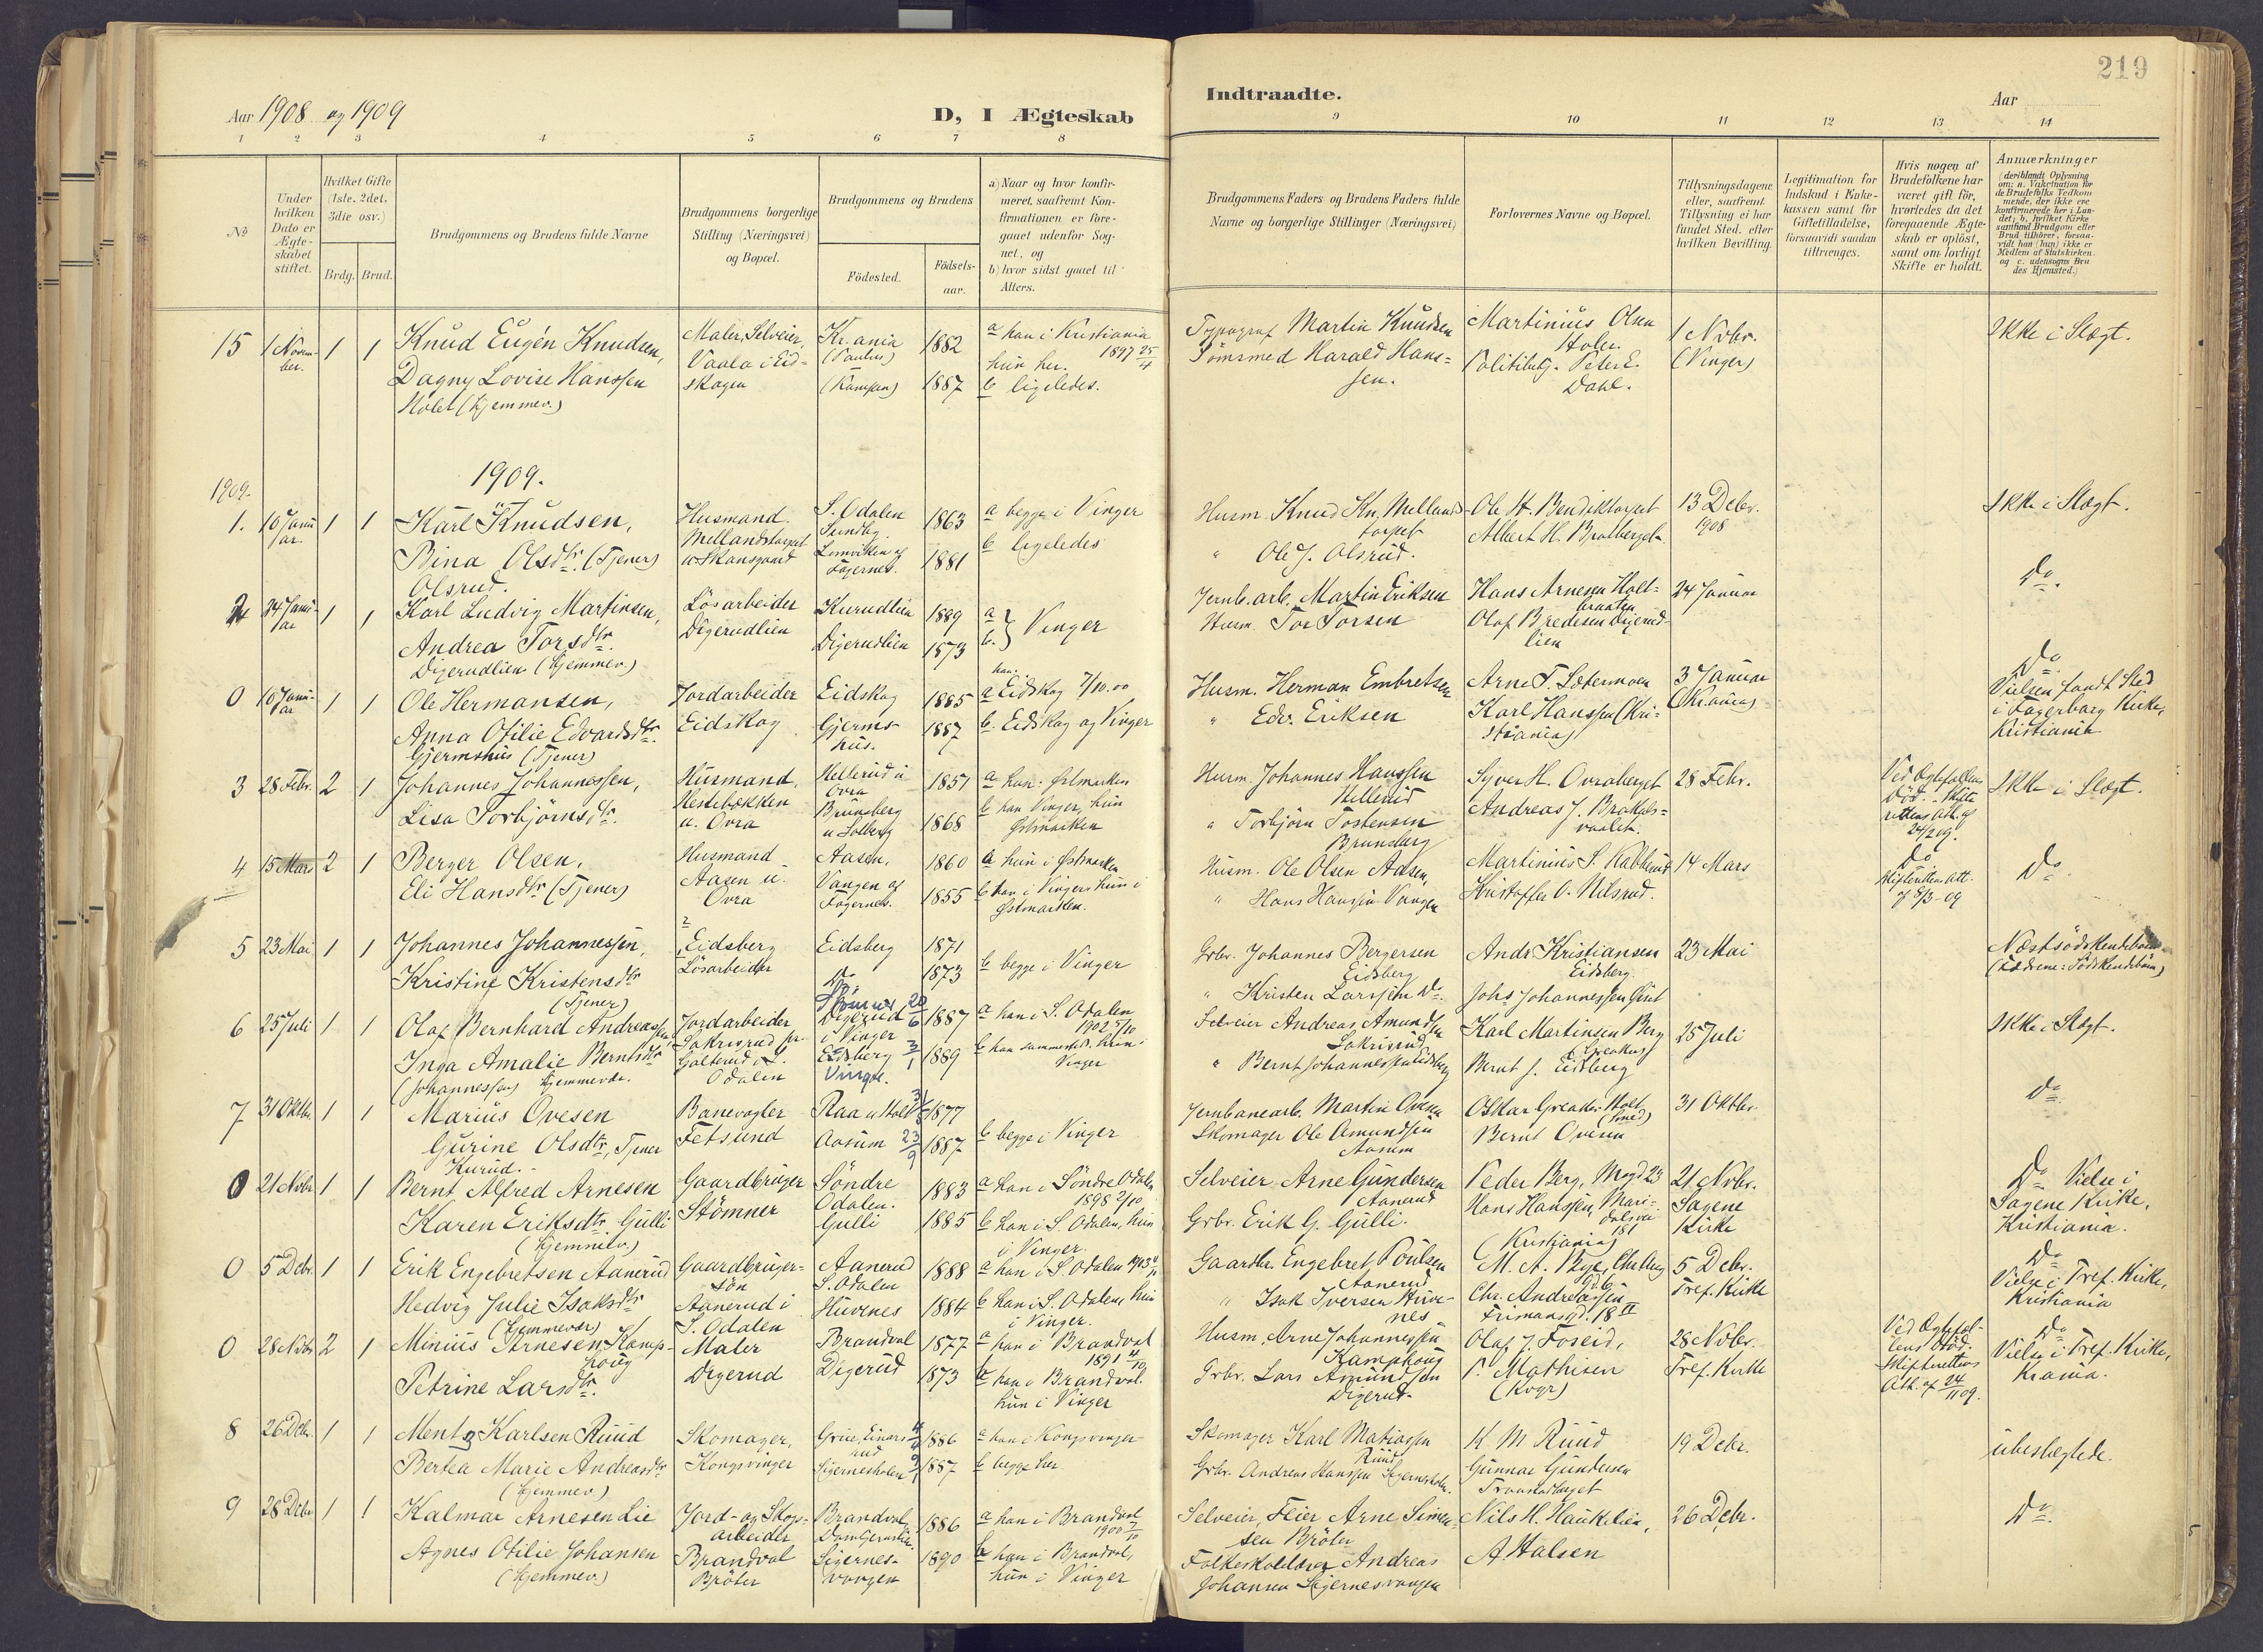 219
Aar 1908 og 1909
D, I Ægteskab
Indtraadte.
Aar
1 2 3 4 5 6 7 8 9 10 11 12 13 14
No
Under hvilken Dato er Ægteskabet stiftet.
Hvilket Gifte (1ste, 2det, 3die osv.)
Brdg. Brud.
Brudgommens og Brudens fulde Navne
Brudgommens borgerlige Stilling (Næringsvei) og Bopæl.
Brudgommens og Brudens
Födested.
Födsels-aar.
a) Naar og hvor konfirmeret, saafremt Konfirmationen er foregaaet udenfor Sognet, og
b) hvor sidst gaaet til Alters.
Brudgommens Faders og Brudens Faders fulde Navne og borgerlige Stillinger (Næringsvei)
Forlovernes Navne og Bopæl.
Tillysningsdagene eller, saafremt Tillysning ei har fundet Sted, efter hvilken Bevilling.
Legitimation for Indskud i Enkekassen samt for Giftetilladelse, forsaavidt saadan tiltrænges.
Hvis nogen af Brudefolkene har været gift för, hvorledes da det foregaaende Ægteskab er oplöst, samt om lovligt Skifte er holdt.
Anmærkninger
15 1 Novem-ber. 1 1
Knud Eugén Knudsen,
Dagny Lovise Hanssen
Holet (hjemmev.)
Maler, Selveier,
Vaala i Eid-
skogen
Kr.ania
(Paulus)
1882
1887
a han i Kristiania
1897 25/4
hun her.
b ligeledes.
Typograf Martin Knudsen
Harald Hans-
sen.
Martinius Olsen
Holer.
Peter E.
Dahl.
1 Novbr.
(Vinger)
Ikke i Slægt.
1909.
1909.
1. 10 Janu-ar. 1 1
Karl Knudsen,
Bina Olsdtr. (Tjener)
Olsrud.
Husmand.
Mellandstorpet
S. Odalen
Sundby
Lomviken af
Fagernes.
1863
1881
a begge i Vinger
b ligeledes
Husm. Knud Kn. Mellands-
torpet
" Ole J. Olsrud.
Ole H. Bendiktorpet
Albert H.
13 Decbr.
1908
Ikke i Slægt.
2 24 Janu-ar 1 1
Karl Ludvig Martinsen,
Andrea Torsdtr.
Digerudlien (hjemmev.)
Lösarbeider
Digerudlien
Kurudlien
Digerudlien
1889
1873
a
b. } Vinger
Jernb.arb. Martin Eriksen
Husm. Tor Torsen
Hans Arnesen Holt-
braaten
Olaf Bredesen Digerud-
lien
24 Januar
Do.
0 10 Janu-ar 1 1
Ole Hermansen,
Anna Otilie Edvardsdtr.
Gjermshus (Tjener)
Jordarbeider
Eidskog
Eidskog
Gjerms-
hus.
1885
1887
han:
a Eidskog 7/10.00
b. Eidskog og Vinger
Husm. Herman Embretsen
" Edv. Eriksen
Arne T. Sætermoen
Karl Hanssen (Kri-
stiania)
3 Januar
(Kr.ania)
Do.
Vielsen fandt Sted
i Fagerborg Kirke,
Kristiania
3 28 Febr. 2 1
Johannes Johannessen,
Lisa Torbjörnsdtr.
Husmand,
Hestebækken
u. Ovra
Hellerud u
Ovra
Brunsberg
u Solberg
1857
1868
a han: Østmarken
b han Vinger, hun
Østmarken
Husm. Johannes Hanssen
Hellerud
" Torbjörn Tostensen
Brunsberg
Syver H. Ovraberget
Andreas J.
28 Febr.
Ved Ægtefællens
Död. Skifte-
rettens Att. af
24/2 09.
Ikke i Slægt.
4 15 Mars 2 1
Berger Olsen,
Eli Hansdtr (Tjener)
Husmand
Aasen u.
Ovra
Aasen,
Vangen af
Fagernes.
1860
1855
a hun i Østmarken
b han i Vinger, hun i
Østmarken.
Husm. Ole Olsen Aasen,
" Hans Hanssen Vangen
Martinius S.
Kristoffer O. Nilsrud.
14 Mars
Do
Skifterettens Att.
Do.
5 23 Mai 1 1
Johannes Johannessen,
Kristine Kristensdtr
(Tjener)
Eidsberg
Lösarbeider
Eidsberg
Do
1871
1873
b begge i Vinger
Grbr. Johannes Bergersen
Eidsberg
" Kristen Larssen Do.
Andr Kristiansen
Eidsberg.
Johs Johannessen
23 Mai
Næstsödskendebörn
(Fædrene: Södskendebörn)
6 25 Juli 1 1
Olaf Bernhard Andreassen,
Inga Amalie Berntsdtr
(Johannessen) hjemmevær.
Jordarbeider
Sakrisrud pr.
Galterud, S.
Odalen
Digerud 20/6
i Vinger
Eidsberg 3/1
Vinger.
1887
1889
a han i S. Odalen
1902 5/10
b han sammesteds. hun i
Vinger
Selveier Andreas Amundsen
Sakrisrud
" Bernt Johannessen Eidsberg
Karl Martinsen Berg
Bernt J. Eidsberg
25 Juli
Ikke i Slægt.
7 31 Oktbr. 1 1
Marius Ovesen
Gurine Olsdtr, Tjener
Kurud.
Banevogter
Fetsund
Raa u Holt
Aasum 23/9
1877
1887
b begge i Vinger
Jernbanearb. Martin Ovesen
Skomager Ole Amundsen
Aasum
Oskar Greaker Holt
(Smed)
Bernt Ovesen
31 Oktbr.
Do.
0 21 Novbr 1 1
Bernt Alfred Arnesen
Karen Eriksdtr Gulli
(hjemmev.)
Gaardbruger
Stömner
Söndre
Odalen.
Gulli
1883
1885
a han i Söndre Odalen
1898 2/10
b han i S. Odalen, hun
i Vinger.
Selveier Arne Gundersen
Aanerud
Grbr. Erik G. Gulli.
Peder Berg, Mogd 23
Hans Hanssen, Mari-
dalsvei
181
(Kristiania)
21 Novbr.
Sagene
Kirke
Do. Vielse i
Sagene Kirke,
Kristiania.
0 5 Decbr. 1 1
Erik Engebretsen Aanerud
Hedvig Julie Isaksdtr
(hjemmevær)
Gaardbruger-
sön
Aanerud i
S. Odalen
Aanerud
S. Odalen
Huvenes
1888
1884
a han i S. Odalen 1903
b han i S. Odalen, hun
i Vinger.
Gaardbr. Engebret Poulsen
Aanerud
" Isak Iversen Huve-
nes
Chr. Andreassen
Frimansgd. 18 II
5 Decbr.
Tref. Kirke
Do
Vielse i Tref. Kirke,
Kristiania
0 28 Novbr 2 1
Minius Arnesen Kamp-
houg
Petrine Larsdtr.
Maler
Digerud
Brandval
Digerud
1877
1873
a han i Brandval
1891 4/10
b han i Brandval.
hun i Vinger
Husm. Arne Johannessen
Kamphoug
Grbr. Lars Amundsen
Digerud.
Olaf J. Foseid,
P. Mathisen
28 Novbr.
Tref. Kirke
Ved Ægtefæl-
lens Död.
Skifterettens
Att. af 24/11 09.
Do
Vielse i Tref. Kirke,
Kr.ania.
8 26 Decbr. 1 1
Mentz Karlsen Ruud
Berta Marie Andreasdtr
(hjemmev)
Skomager,
Kongsvinger
Grue, Einars-
rud
Sigernesholen
1886
1887
a han i Kongsvinger
b begge her
Skomager Karl Matiassen
Ruud
Grbr. Andreas Hanssen Sigernesholen.
K M Ruud
Gunnar Gundersen
19 Decbr.
ubeslægtede.
9 28 Decbr 1 1
Kalmar Arnesen Lie
Agnes Otilie Johansen
(hjemmev.)
Jord- og Skogs-
arbeider
Brandval
Bröter
Brandval,
Sigernes-
vangen
1886
1890
a han i Brandval
1900 7/10
b han i Brandval,
hun i Vinger
Selveier, Feier Arne Simen-
sen Bröter
Folkeskolelærer Andreas
Johansen Sigernesvangen
Nils H. Haukelien,
A Halsen
26 Decbr.
Do.